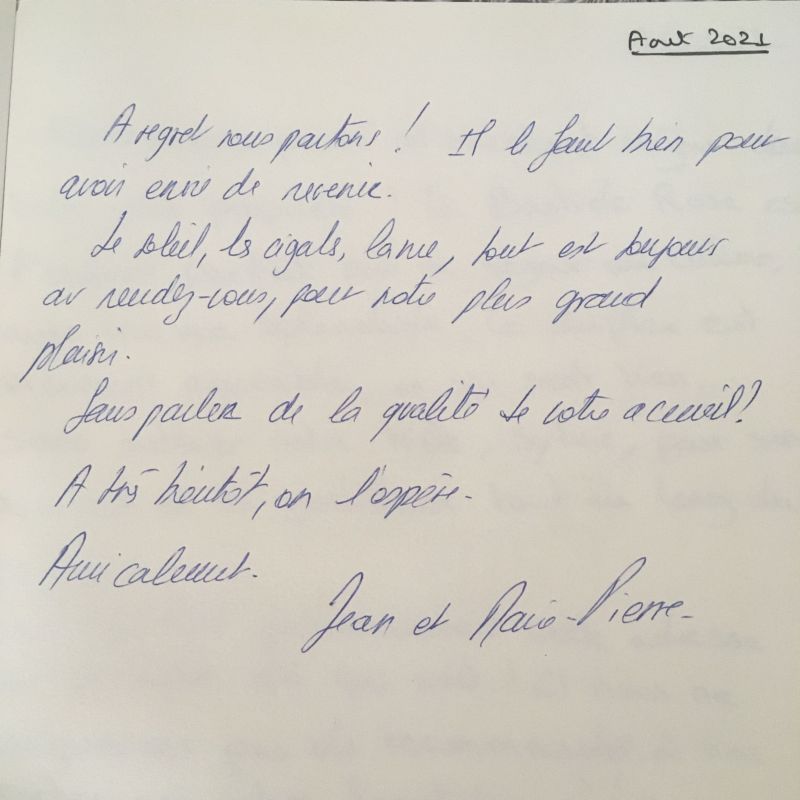 Août 2021
A regret nous partons ! Il le faut bien pour
avoir envie de revenir.
Le soleil, les cigales, l'amie, tout est toujours
au rendez-vous, pour notre plus grand
plaisir.
Sans parler de la qualité de votre accueil !
A très bientôt, on l'espère.
Amicalement.
Jean et Marie-Pierre